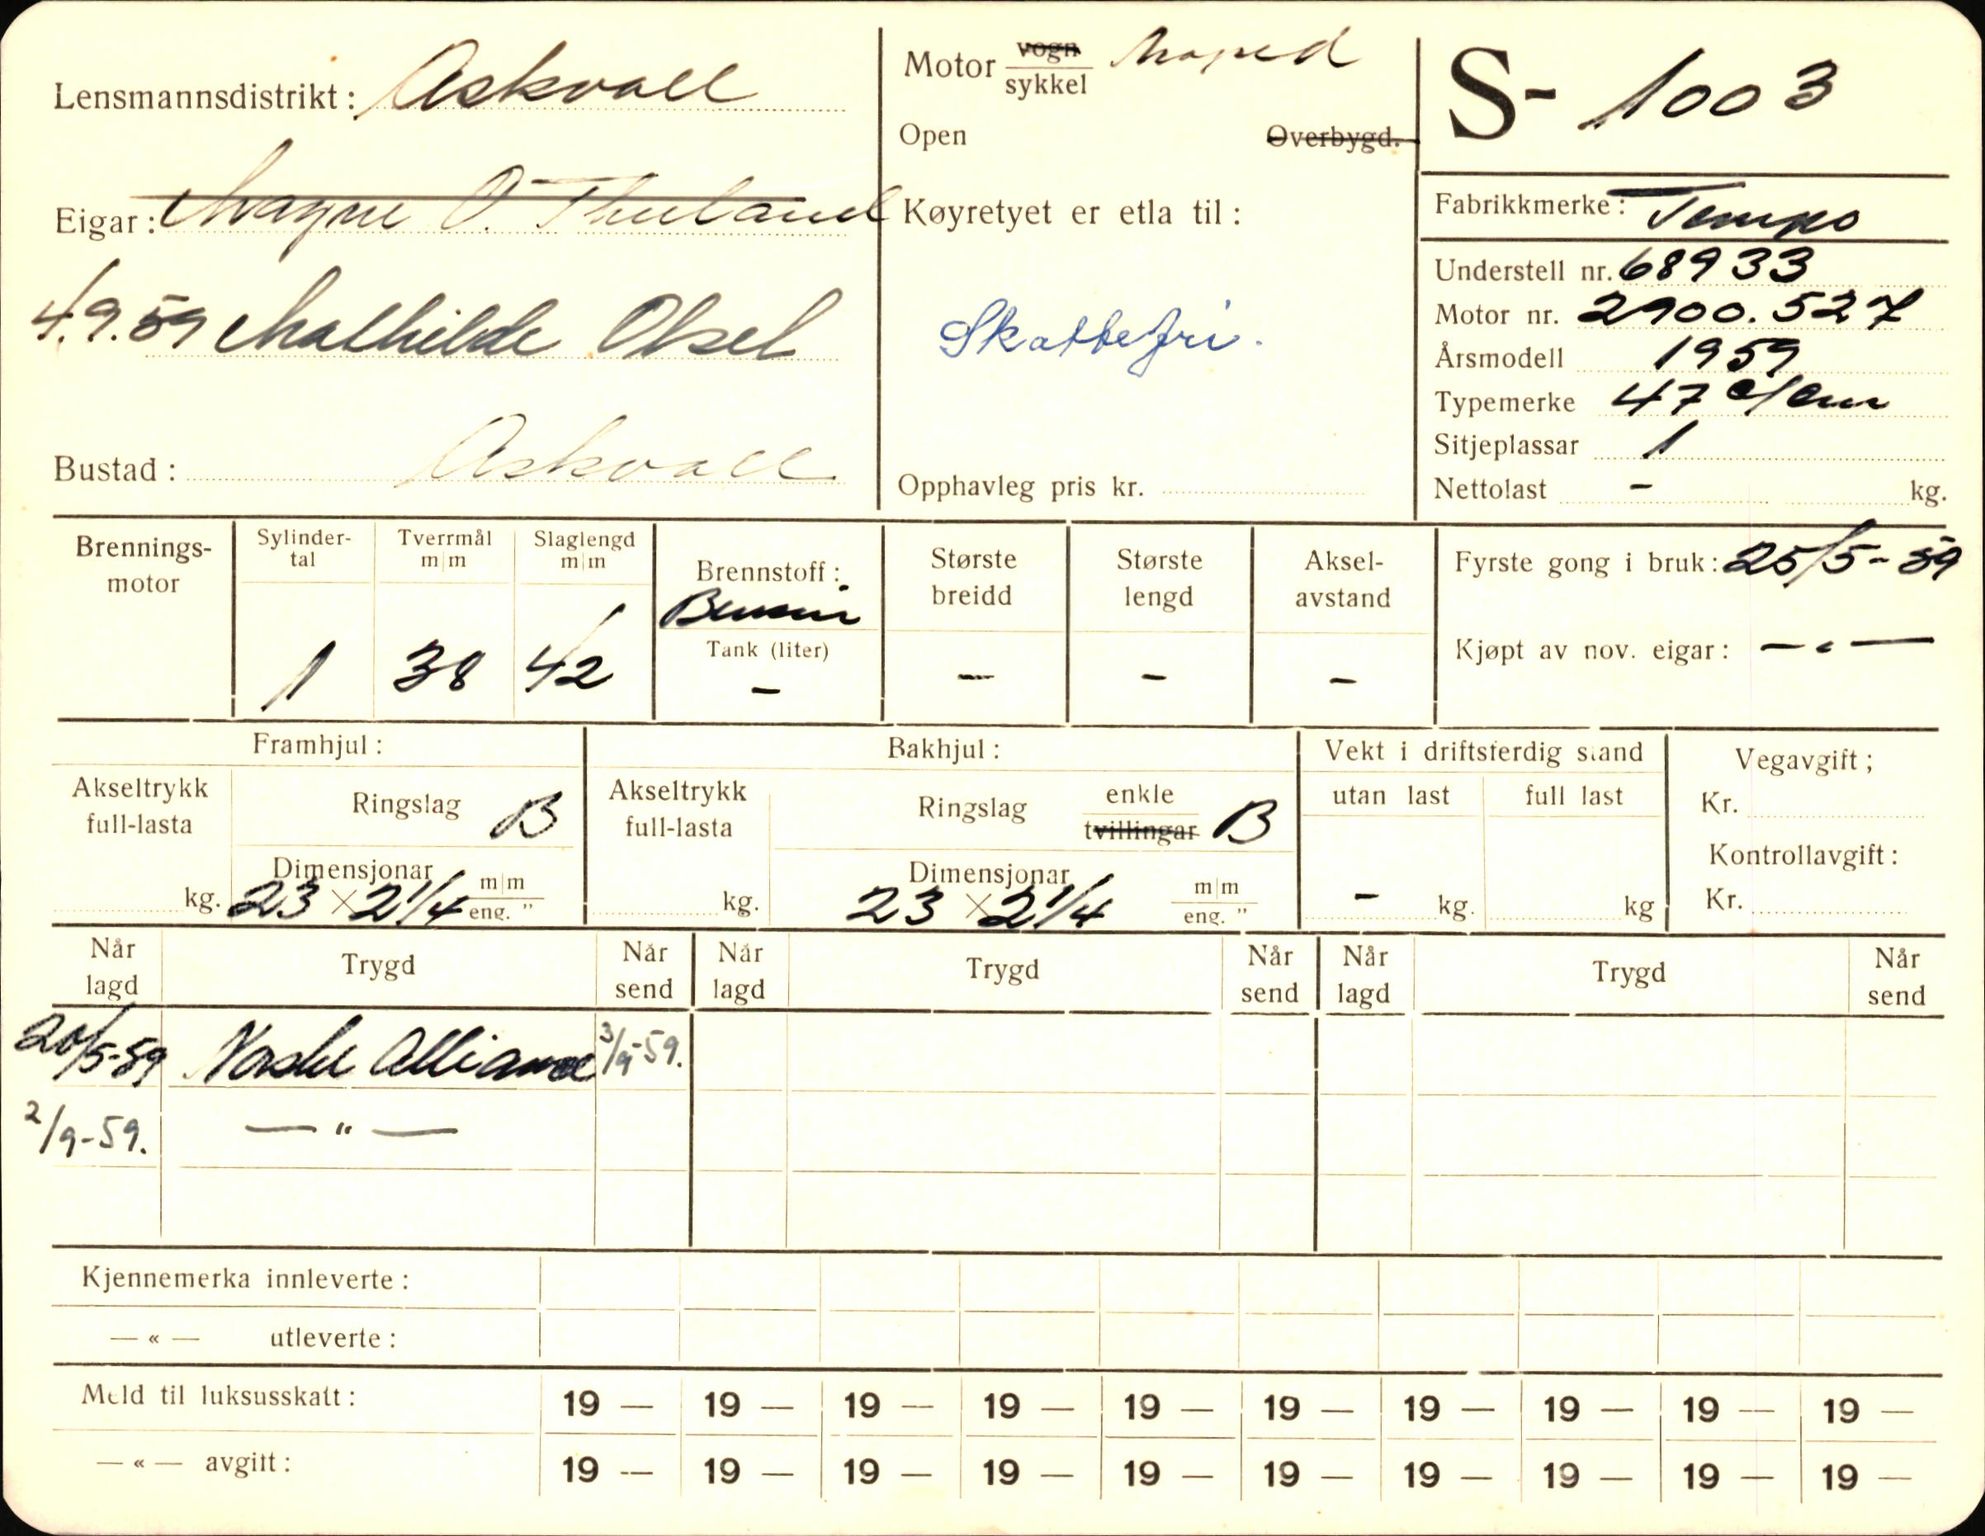 Lensmannsdistrikt: Askvoll
Eigar: Magne O. Thuland
4.9.59 Mathilde Obsel
Bustad: Askvoll
Motor vogn/sykkel Moped
Open Overbygd.
Køyretyet er etla til:
Skattefri.
Opphavleg pris kr.
S- 1003
Fabrikkmerke: Tempo
Understell nr. 68933
Motor nr. 2900.527
Årsmodell 1959
Typemerke 47 c/cm
Sitjeplassar 1
Nettolast - kg.
Brennings-motor
Sylinder-tal 1
Tverrmål m|m 38
Slaglengd m|m 42
Brennstoff: Bensin
Tank (liter) -
Største breidd -
Største lengd -
Aksel-avstand -
Fyrste gong i bruk: 25/5-59
Kjøpt av nov. eigar: — " —
Framhjul:
Akseltrykk full-lasta kg.
Ringslag B
Dimensjonar 23 × 2 1/4 m|m eng. "
Bakhjul:
Akseltrykk full-lasta kg.
Ringslag enkle tvillingar B
Dimensjonar 23 × 2 1/4 m|m eng. "
Vekt i driftsferdig stand
utan last - kg.
full last kg
Vegavgift;
Kr.
Kontrollavgift:
Kr.
Når lagd Trygd Når send Når lagd Trygd Når send Når lagd Trygd Når send
20/5-59 Norske Alliance 3/9-59.
2/9-59. — " —
Kjennemerka innleverte:
— « — utleverte:
Meld til luksusskatt: 19 — 19 — 19 — 19 — 19 — 19 — 19 — 19 — 19 — 19 —
— « — avgitt: 19 — 19 — 19 — 19 — 19 — 19 — 19 — 19 — 19 — 19 —